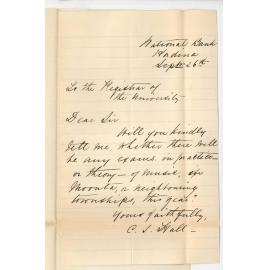 National Bank
Kadina
Sept 26th
To the Registrar of
the University
Dear Sir
Will you kindly
tell me whether there will
be any exams. in practice
or theory of music, at
Moonta, or neighbouring
townships, this year.
Yours faithfully,
C. S. Hall